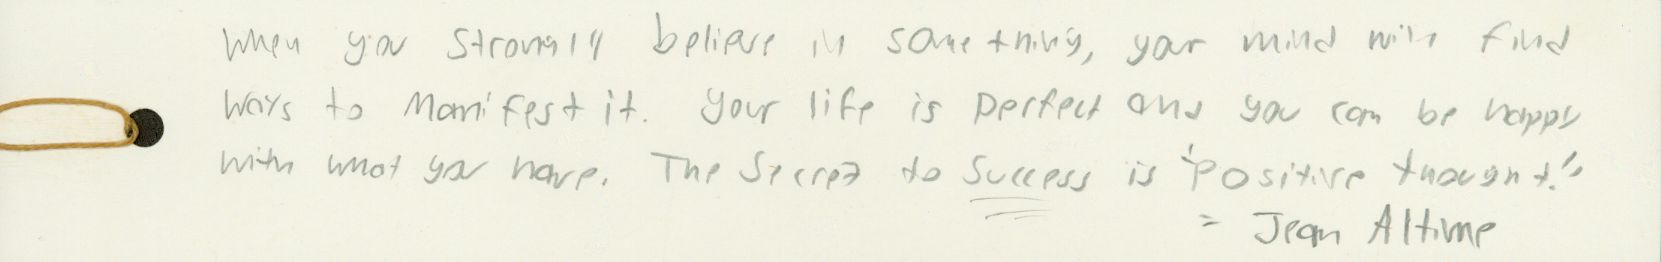 When you strongly believe in something, your mind will find
ways to manifest it. Your life is perfect and you can be happy
with what you have. The Secret to Success is "Positive thought."
- Jean Altime